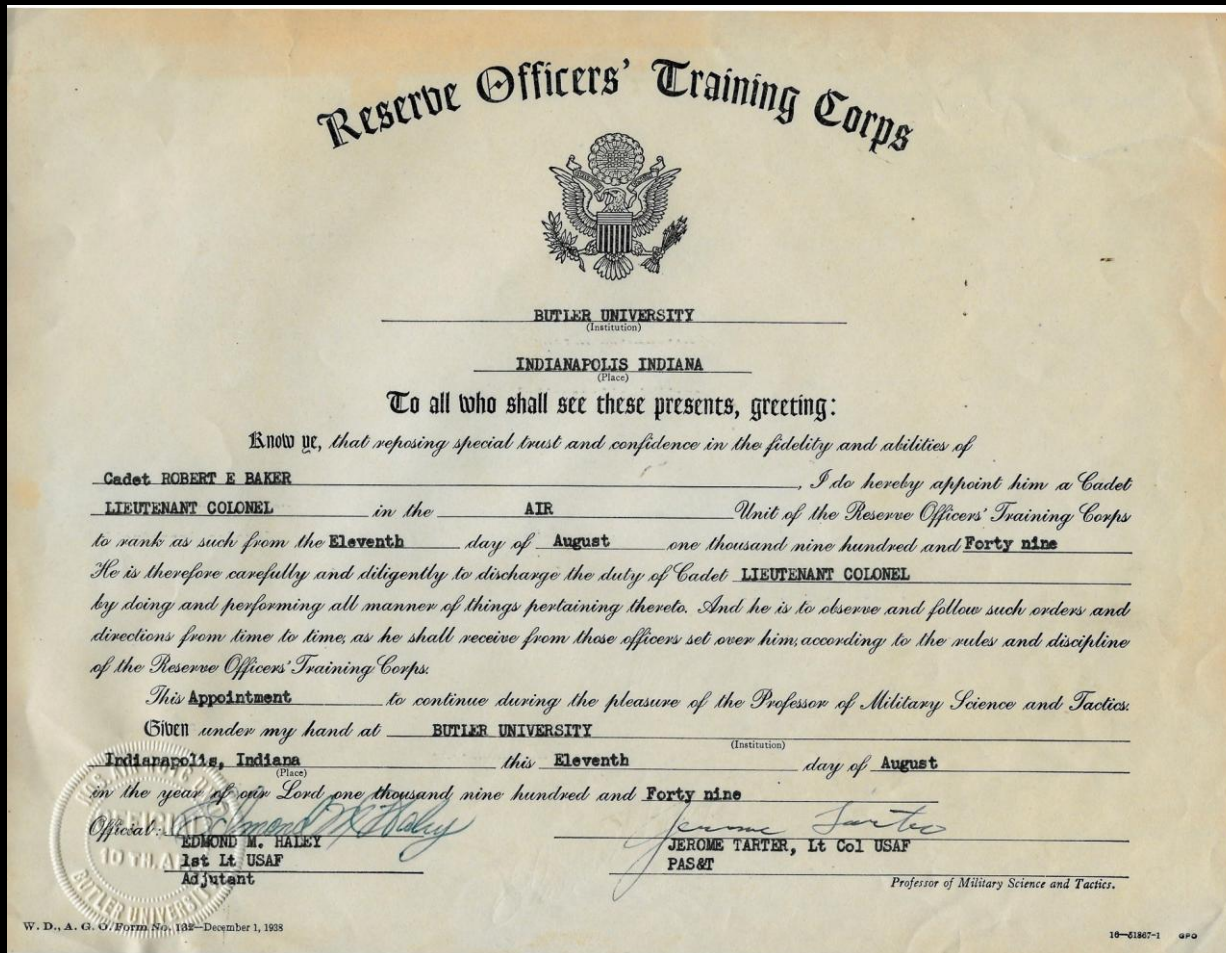 Reserve Officers' Training Corps
BUTLER UNIVERSITY
(Institution)
INDIANAPOLIS INDIANA
(Place)
To all who shall see these presents, greeting:
Know ye, that reposing special trust and confidence in the fidelity and abilities of
Cadet ROBERT E BAKER, I do hereby appoint him a Cadet
LIEUTENANT COLONEL in the AIR Unit of the Reserve Officers' Training Corps
to rank as such from the Eleventh day of August one thousand nine hundred and Forty nine
He is therefore carefully and diligently to discharge the duty of Cadet LIEUTENANT COLONEL
by doing and performing all manner of things pertaining thereto. And he is to observe and follow such orders and
directions from time to time, as he shall receive from those officers set over him, according to the rules and discipline
of the Reserve Officers' Training Corps.
This Appointment to continue during the pleasure of the Professor of Military Science and Tactics.
Given under my hand at BUTLER UNIVERSITY
(Institution)
Indianapolis, Indiana this Eleventh day of August
(Place)
in the year of our Lord one thousand nine hundred and Forty nine
Official: Edmond M Haley Jerome Tarter
EDMOND M. HALEY JEROME TARTER, Lt Col USAF
1st Lt USAF PAS&T
Adjutant Professor of Military Science and Tactics.
OFFICIAL
10 TH. A
BUTLER UNIVERSITY
W. D., A. G. O. Form No. 132—December 1, 1938 16—51867-1 GPO